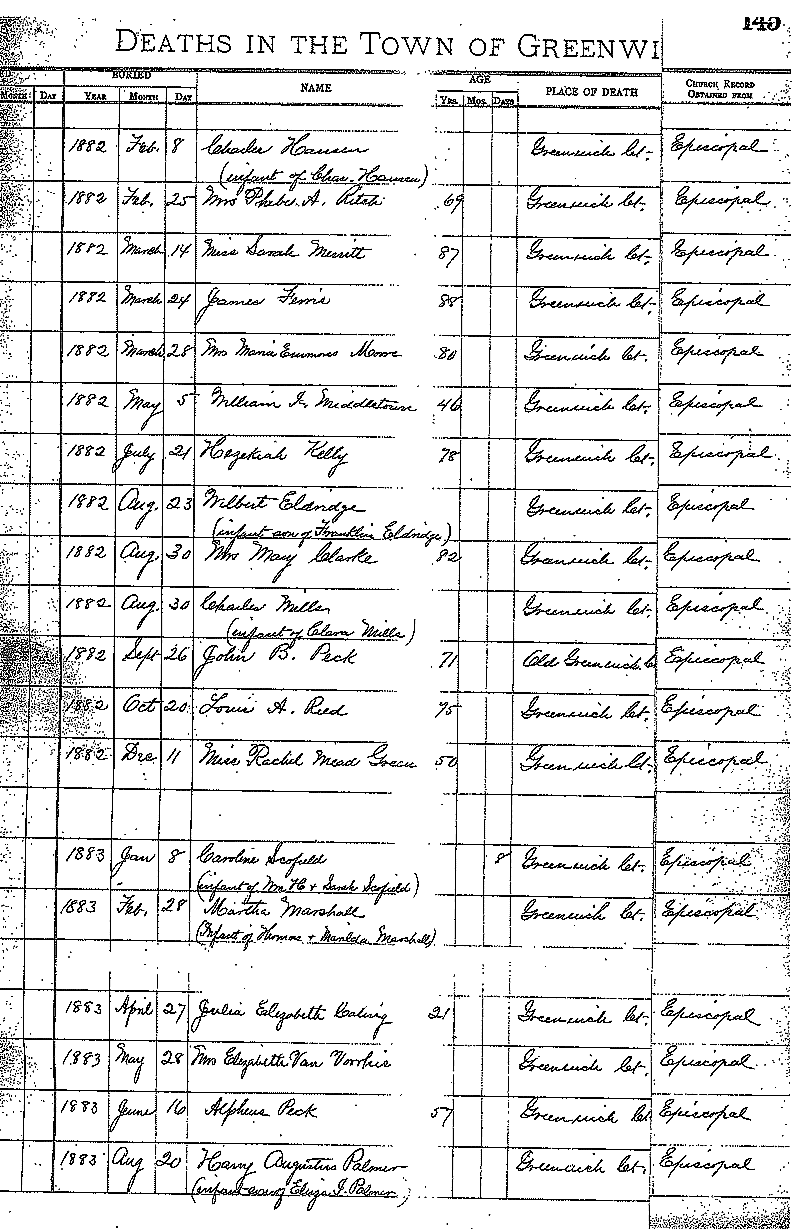 140
DEATHS IN THE TOWN OF GREENWI
BURIED NAME AGE PLACE OF DEATH CHURCH RECORD OBTAINED FROM
MONTH DAY YEAR MONTH DAY YRS. MOS. DAYS
1882 Feb. 8 Charles Hansen Greenwich Ct. Episcopal
(infant of Chas. Hansen)
1882 Feb. 25 Mrs Phebe A. Ritch 69 Greenwich Ct. Episcopal
1882 March 14 Miss Sarah Merritt 87 Greenwich Ct. Episcopal
1882 March 24 James Ferris 88 Greenwich Ct. Episcopal
1882 March 28 Mrs Maria Emmons 80 Greenwich Ct. Episcopal
1882 May 5 William I. Middletown 46 Greenwich Ct. Episcopal
1882 July 21 Hezekiah Kelly 78 Greenwich Ct. Episcopal
1882 Aug. 23 Wilbert Eldridge Greenwich Ct. Episcopal
(infant son of Franklin Eldridge)
1882 Aug. 30 Mrs Mary Clarke 82 Greenwich Ct. Episcopal
1882 Aug. 30 Charles Mills Greenwich Ct. Episcopal
(infant of Clara Mills)
1882 Sept 26 John B. Peck 71 Old Greenwich Episcopal
1882 Oct 20 Louis A. Reed 75 Greenwich Ct. Episcopal
1882 Dec 11 Miss Rachel Mead Green 50 Greenwich Ct. Episcopal
1883 Jan 8 Caroline Scofield 8 Greenwich Ct. Episcopal
(infant of Wm H + Sarah Scofield)
1883 Feb. 28 Martha Marshall Greenwich Ct. Episcopal
(Infant of Thomas + Matilda Marshall)
1883 April 27 Julia Elizabeth 21 Greenwich Ct. Episcopal
1883 May 28 Mrs Elizabeth Van Voorhis Greenwich Ct. Episcopal
1883 June 16 Alpheus Peck 57 Greenwich Ct Episcopal
1883 Aug 20 Harry Augustus Palmer Greenwich Ct. Episcopal
(infant son of Eliza I. Palmer)